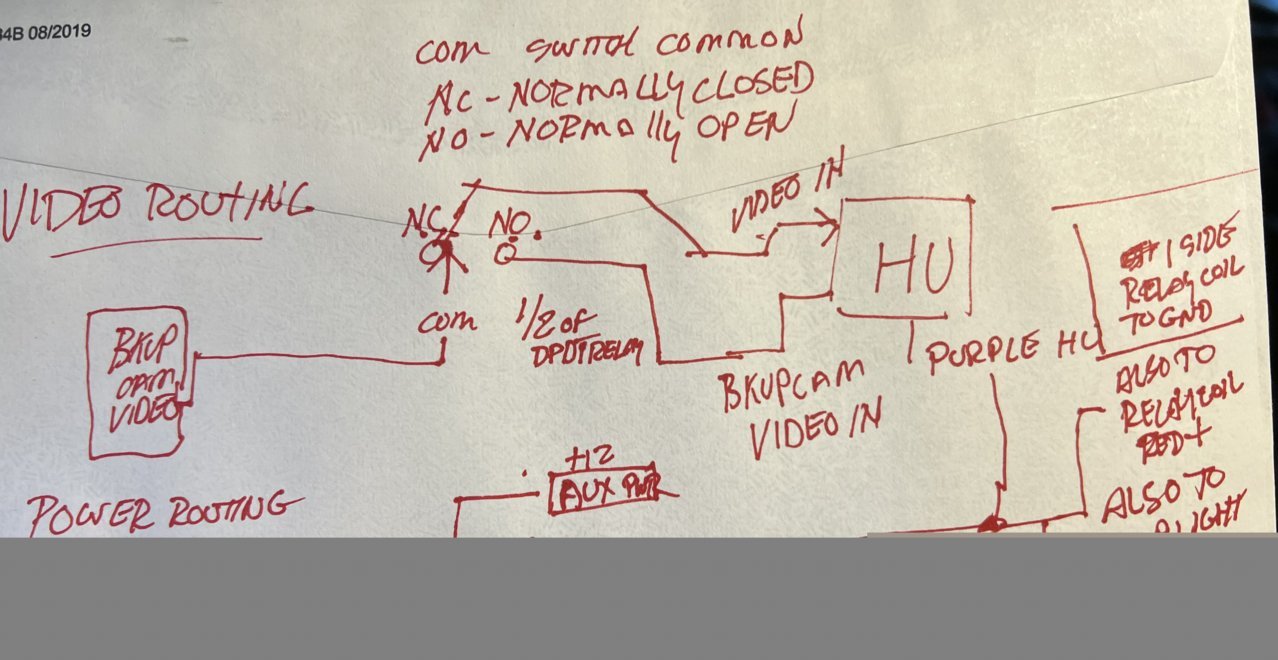 34B 08/2019
COM SWITCH COMMON
NC - NORMALLY CLOSED
NO - NORMALLY OPEN
VIDEO ROUTING
N.C.
NO.
VIDEO IN
HU
1 SIDE
RELAY COIL
TO GND
COM
1/2 OF
DPDT RELAY
BKUP
CAM
VIDEO
PURPLE HU
ALSO TO
RELAY COIL
RED +
BKUPCAM
VIDEO IN
+12
AUX PWR
POWER ROUTING
ALSO TO